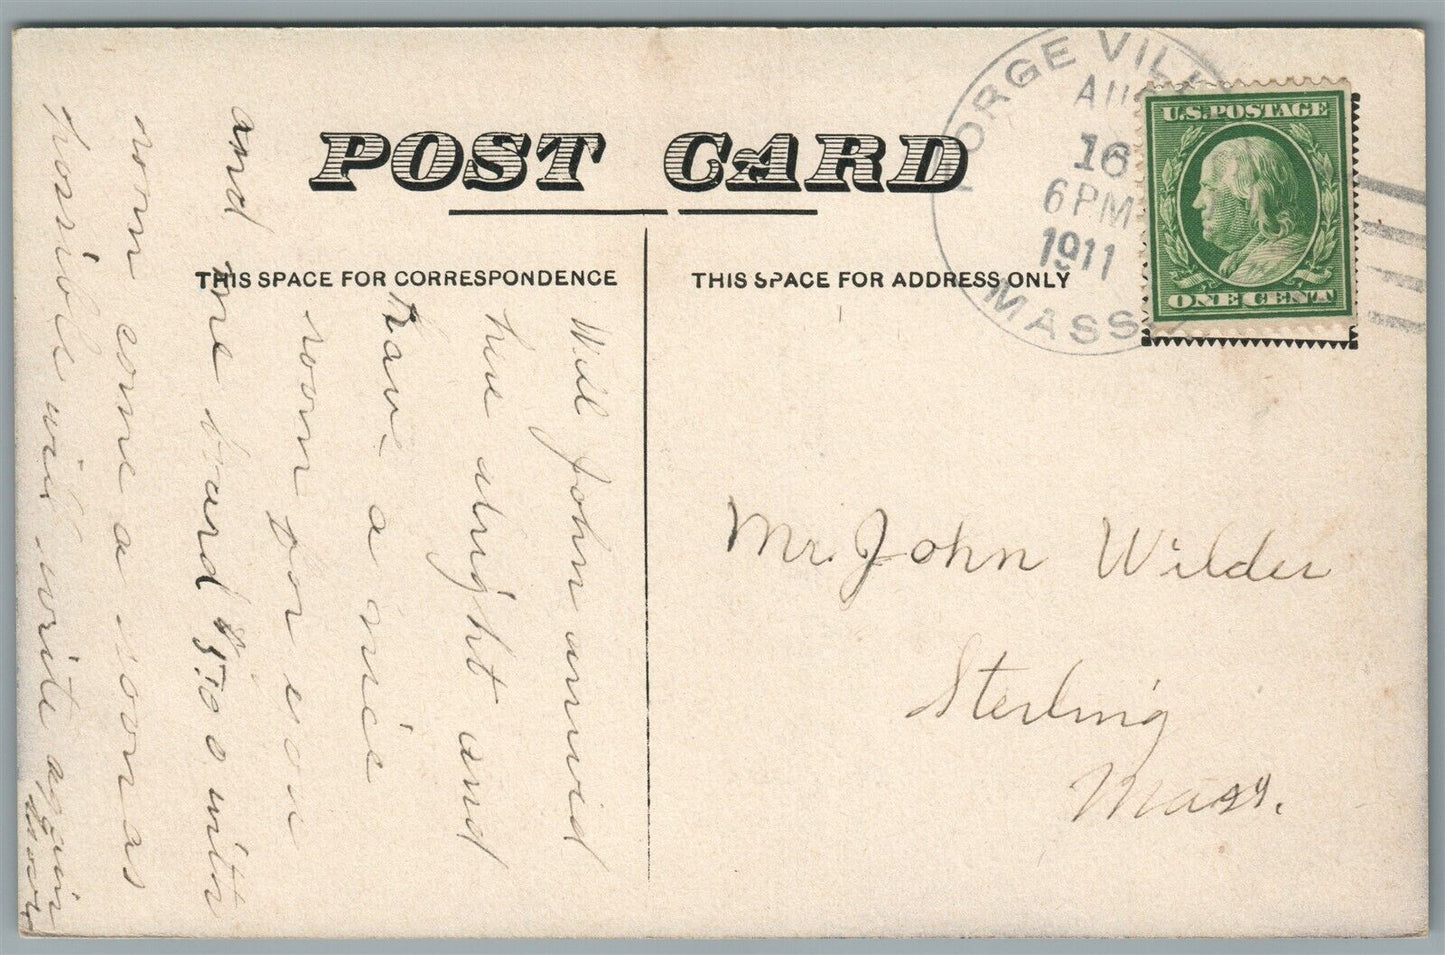 POST CARD
THIS SPACE FOR CORRESPONDENCE
THIS SPACE FOR ADDRESS ONLY
FORGE VILL
AUG
16
6 PM
1911
MASS
U.S. POSTAGE
ONE CENT
Mr. John Wilder
Sterling
Mass.
Will John arrived
here alright and
have a nice
room for you
and me board $5.00 with
room come as soon as
possible will write again